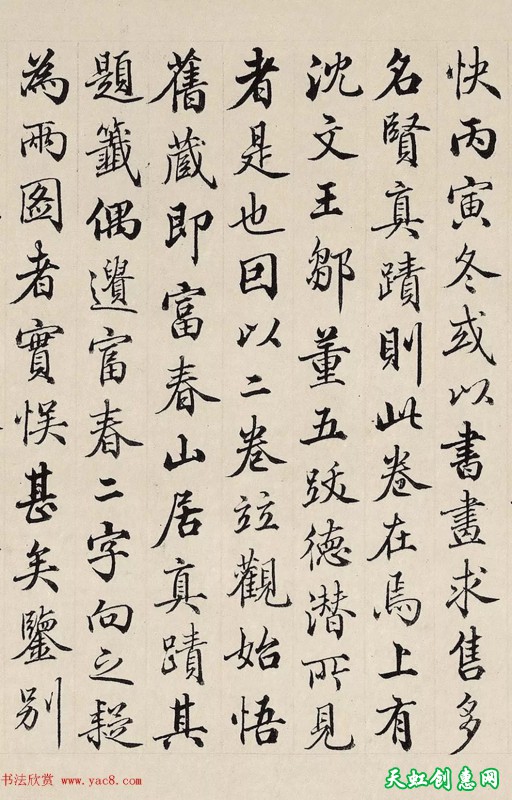 快丙寅冬或以書畫求售多
名賢真蹟則此卷在焉上有
沈文王鄒董五跋德潛所見
者是也回以二卷竝觀始悟
舊蔵即富春山居真蹟其
題籤偶遺富春二字向之疑
為兩圖者實悮甚矣鑒別
书法欣赏 www.yac8.com
天虹创惠网